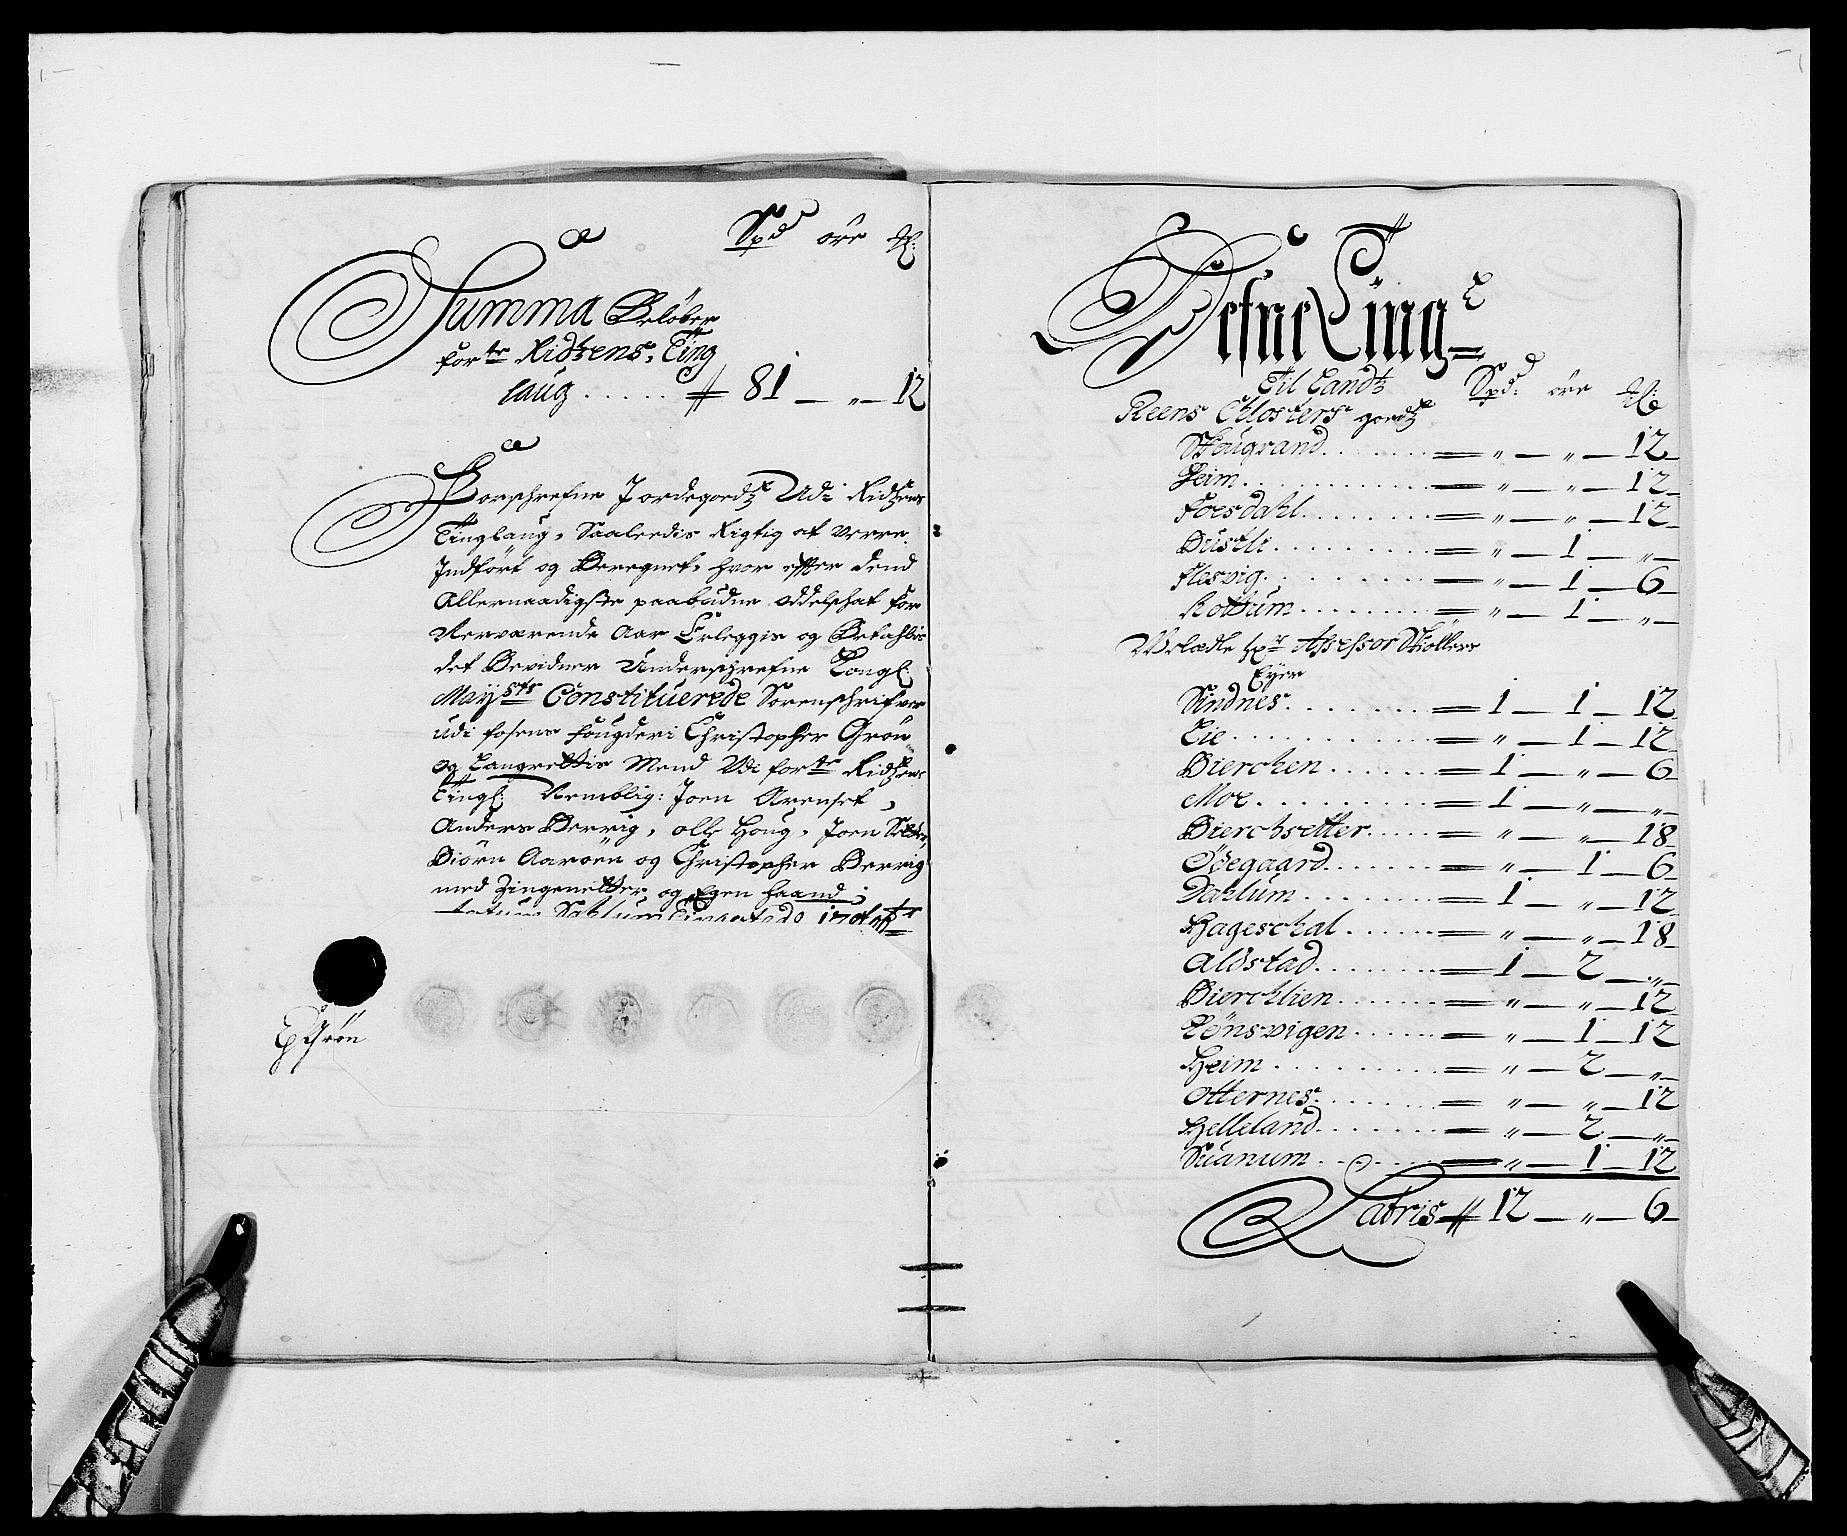 Spd øre
Summa Beløber
for.te Ridtzens Ting
laug ..... # 81 — „ — 12
Forschrefne Jordegoedtz Udi Ridtzens
Tinglaug, Saaleedis Rigtig at verre
Indført og Beregnet, hvor effter dend
Allernaadigste paabudne oddelschat for
Nerværende Aar Erleggis og Betahlis
det Bevidner Underschrefne Kongl:
Mayst:s Constituerede Sorenschrifver
udi fosens fougderi Christopher Grøn
og Laugrettis Mend Udi for.te Ridtzens
Tingl: Nemblig: Joen Arenset,
Anders Berrig, olle Houg, Joen
Biørn Aarøen og Christopher Berrig
med Zingenetter og Egen Haand;
Grøn
Hefne Ting
Til Landtz Spd: øre
Reens Closters goedtz
Schugrand ...... = „ — „ — 12
Heim ...... = „ — „ — 12
Foesdahl ...... = „ — „ — 12
Buseti ...... = „ — 1 — „
Flesvig ...... = „ — 1 — 6
Rottum ...... = „ — 1 — „
Velædle Hr Assessor Schøllers
Eyer
Sindnes ...... = 1 — 1 — 12
Lie ...... = „ — 1 — 12
Bierchen ...... = 1 — „ — 6
Moe ...... = 1 — „ — „
Bierchsetter ...... = „ — „ — 18
Ødegaard ...... = „ — 1 — 6
Dahlum ...... = 1 — „ — 12
Hageschal ...... = „ — „ — 18
Aldstad ...... = 1 — 2 — „
Bierchlien ...... = „ — „ — 12
Lønsvigen ...... = „ — 1 — 12
Heim ...... = „ — 2 — „
Otternes ...... = „ — „ — 12
Helleland ...... = „ — 2 — „
Suanum ...... = „ — 1 — 12
Latris # 12 — „ — 6